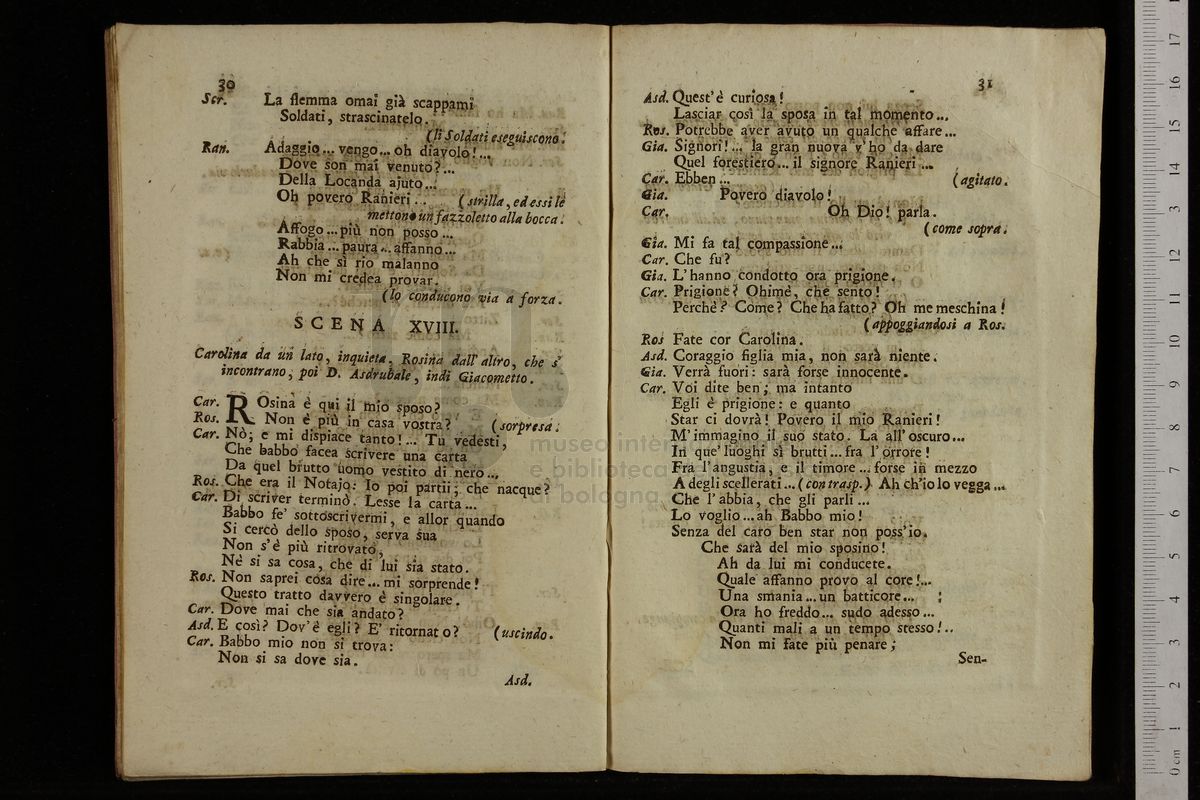 30
Scr. La flemma omai già scappami
Soldati, strascinatelo.
(li Soldati eseguiscono.
Ran. Adaggio... vengo... oh diavolo!...
Dove son mai venuto?...
Della Locanda ajuto...
Oh povero Ranieri.. (strilla, ed essi le
mettono un fazzoletto alla bocca.
Affogo... più non posso...
Rabbia... paura... affanno...
Ah che sì rio malanno
Non mi credea provar.
(lo conducono via a forza.
SCENA XVIII.
Carolina da un lato, inquieta, Rosina dall' altro, che s'
incontrano, poi D. Asdrubale, indi Giacometto.
Car. ROsina è qui il mio sposo?
Ros. Non è più in casa vostra? (sorpresa.
Car. Nò; e mi dispiace tanto!... Tu vedesti,
Che babbo facea scrivere una carta
Da quel brutto uomo vestito di nero...
Ros. Che era il Notajo: Io poi partii; che nacque?
Car. Di scriver terminò. Lesse la carta...
Babbo fe' sottoscrivermi, e allor quando
Si cercò dello sposo, serva sua
Non s'è più ritrovato,
Nè si sa cosa, che di lui sia stato.
Ros. Non saprei cosa dire... mi sorprende!
Questo tratto davvero è singolare.
Car. Dove mai che sia andato?
Asd. E così? Dov'è egli? E' ritornato? (uscindo.
Car. Babbo mio non si trova:
Non si sa dove sia.
Asd.
31
Asd. Quest'è curiosa!
Lasciar così la sposa in tal momento...
Ros. Potrebbe aver avuto un qualche affare...
Gia. Signori!... la gran nuova v'ho da dare
Quel forestiero... il signore Ranieri...
Car. Ebben... (agitato.
Gia. Povero diavolo!
Car. Oh Dio! parla.
(come sopra.
Gia. Mi fa tal compassione...
Car. Che fu?
Gia. L'hanno condotto ora prigione.
Car. Prigione? Ohimè, che sento!
Perchè? Come? Che ha fatto? Oh me meschina!
(appoggiandosi a Ros.
Ros Fate cor Carolina.
Asd. Coraggio figlia mia, non sarà niente.
Gia. Verrà fuori: sarà forse innocente.
Car. Voi dite ben; ma intanto
Egli è prigione: e quanto
Star ci dovrà! Povero il mio Ranieri!
M'immagino il suo stato. La all'oscuro...
In que' luoghi sì brutti... fra l'orrore!
Fra l'angustia, e il timore... forse in mezzo
A degli scellerati... (con trasp.) Ah ch'io lo vegga...
Che l'abbia, che gli parli...
Lo voglio... ah Babbo mio!
Senza del caro ben star non poss'io.
Che sarà del mio sposino!
Ah da lui mi conducete.
Quale affanno provo al core!...
Una smania... un batticore...
Ora ho freddo... sudo adesso...
Quanti mali a un tempo stesso!..
Non mi fate più penare;
Sen-